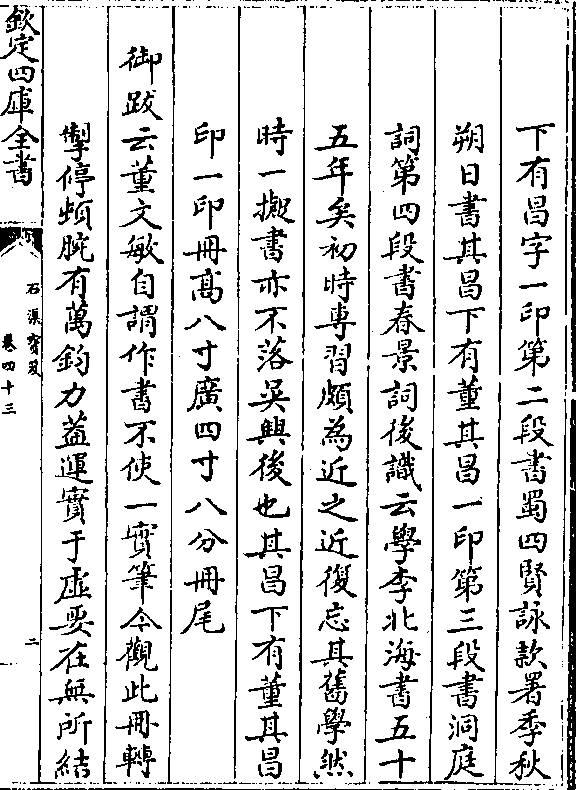 下有昌字一印第二段書蜀四賢詠款署季秋
朔日書其昌下有董其昌一印第三段書洞庭
詞第四段書春景詞後識云學李北海書五十
五年矣初時專習頗為近之近復忘其舊學然
時一擬書亦不落吳興後也其昌下有董其昌
印一印冊髙八寸廣四寸八分冊尾
御跋云董文敏自謂作書不使一實筆今觀此冊轉
掣停頓腕有萬鈞力葢運實于虛要在無所結
欽定四庫全書
石渠寳笈
卷四十三
二